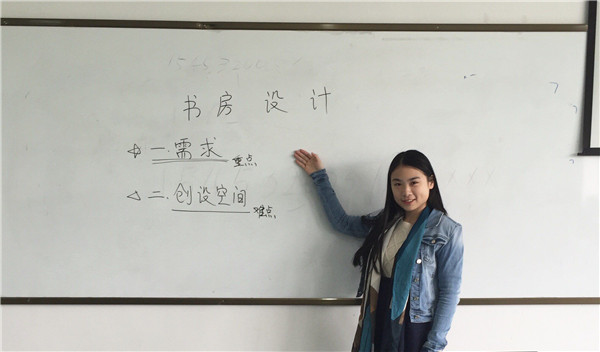 书房 设计
一.需求 重点
二.创设空间 难点